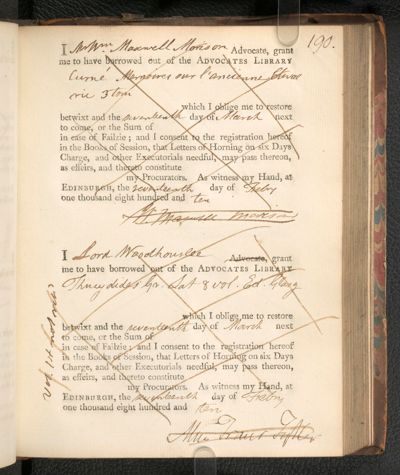 190.
I Mr Wm Maxwell Morison Advocate, grant
me to have borrowed out of the ADVOCATES LIBRARY
Memoires sur l'ancienne
3 tom
which I oblige me to restore
betwixt and the seventeenth day of March next
to come, or the Sum of
in case of Failzie; and I consent to the registration hereof
in the Books of Session, that Letters of Horning on six Days
Charge, and other Executorials needful, may pass thereon,
as effeirs, and thereto constitute
my Procurators. As witness my Hand, at
EDINBURGH, the seventeenth day of Feby
one thousand eight hundred and ten
Wm Maxwell Morison
I Lord Woodhouslee Advocate, grant
me to have borrowed out of the ADVOCATES LIBRARY
Thucydides Gr. Lat 8 vol. Ed. Glasg
which I oblige me to restore
betwixt and the seventeenth day of March next
to come, or the Sum of
in case of Failzie; and I consent to the registration hereof
in the Books of Session, that Letters of Horning on six Days
Charge, and other Executorials needful, may pass thereon,
as effeirs, and thereto constitute
my Procurators. As witness my Hand, at
EDINBURGH, the seventeenth day of Feby
one thousand eight hundred and ten
Fraser Tytler